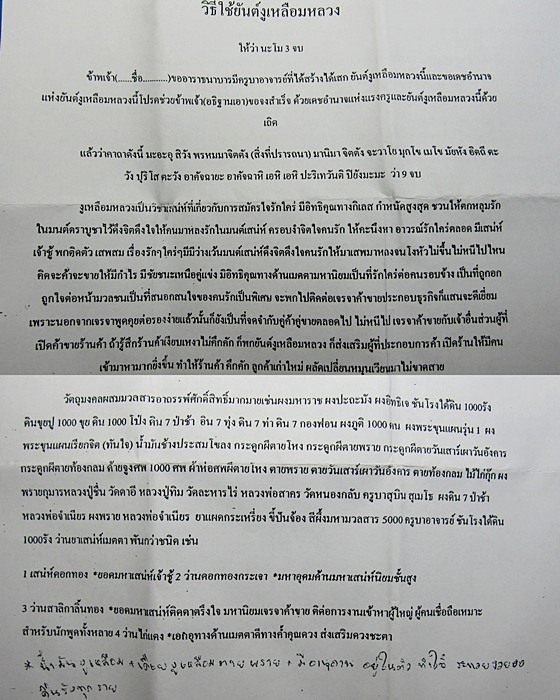 วิธีใช้ยันต์งูเหลือมหลวง
ให้ว่า นะโม 3 จบ
ข้าพเจ้า(......ชื่อ...........)ขออาราธนาบารมีครูบาอาจารย์ที่ได้สร้างได้เสก ยันต์งูเหลือมหลวงนี้และขอเดชอำนาจ
แห่งยันต์งูเหลือมหลวงนี้โปรดช่วยข้าพเจ้า(อธิฐานเอา)ขอจงสำเร็จ ด้วยเดชอำนาจแห่งแรงครูและยันต์งูเหลือมหลวงนี้ด้วย
เถิด
แล้วว่าคาถาดังนี้ มะอะอุ สิวัง พรหมมาจิตตัง (สิ่งที่ปรารถนา) มานิมา จิตตัง จะวาโย มุกโข เมโข มัยหัง อิตถี ตะ
วัง ปุริโส ตะวัง อาคัจฉายะ อาคัจฉาหิ เอหิ เอหิ ปะริเทวันติ ปิยังมะมะ ว่า 9 จบ
งูเหลือมหลวงเป็นวิชาเสน่ห์ที่เกี่ยวกับการสมัครใจรักใคร่ มีอิทธิคุณทางกิเลส กำหนัดสูงสุด ชวนให้ตกหลุมรัก
ในมนต์ตราบูชาไว้ดึงจิตดึงใจให้คนมาหลงรักในมนต์เสน่ห์ ครอบงำจิตใจคนรัก ให้คะนึงหา อาวรณ์รักใคร่ตลอด มีเสน่ห์
เจ้าชู้ พกติดตัว เสพสม เรื่องรักๆใคร่ๆมีมีว่างเว้นมนต์เสน่ห์ดึงจิตดึงใจคนรักให้มาเสพมาหลงจนโงหัวไม่ขึ้นไม่หนีไปไหน
คิดจะค้าจะขายให้มีกำไร มีชัยชนะเหนือคู่แข่ง มีอิทธิคุณทางด้านเมตตามหานิยมเป็นที่รักใคร่ต่อคนรอบข้าง เป็นที่ถูกอก
ถูกใจต่อหน้ามวลชนเป็นที่สนอกสนใจของคนรักเป็นพิเศษ จะพกไปติดต่อเจรจาค้าขายประกอบธุรกิจก็แสนจะดีเยี่ยม
เพราะนอกจากเจรจาพูดคุยต่อรองง่ายแล้วนั้นก็ยังเป็นที่จดจำกับคู่ค้าคู่ขายตลอดไป ไม่หนีไป เจรจาค้าขายกับเจ้าอื่นส่วนผู้ที่
เปิดค้าขายร้านค้า ถ้ารู้สึกร้านค้าเงียบเหงาไม่คึกคัก ก็พกยันต์งูเหลือมหลวง ก็ส่งเสริมผู้ที่ประกอบการค้า เปิดร้านให้มีคน
เข้ามาหามากยิ่งขึ้น ทำให้ร้านค้า คึกคัก ลูกค้าเก่าใหม่ ผลัดเปลี่ยนหมุนเวียนมาไม่ขาดสาย
วัตถุมงคลผสมมวลสารอาถรรพ์ศักดิ์สิทธิ์มากมายเช่นผงมหาราช ผงปะถะมัง ผงอิทธิเจ ชันโรงใต้ดิน 1000รัง
ดินขุยปู 1000 ขุย ดิน 1000 โป่ง ดิน 7 ป่าช้า อิน 7 ทุ่ง ดิน 7 ท่า ดิน 7 กองฟอน ผงภูติ 1000 ตน ผงพระขุนแผนรุ่น 1 ผง
พระขุนแผนเรียกจิต (ทันใจ) น้ำมันช้างประสมโขลง กระดูกผีตายโหง กระดูกผีตายพราย กระดูกผีตายวันเสาร์เผาวันอังคาร
กระดูกผีตายท้องกลม ด้ายจูงศพ 1000 ศพ ผ้าห่อศพผีตายโหง ตายพราย ตายวันเสาร์เผาวันอังคาร ตายท้องกลม ไม้ไก่กุ๊ก ผง
พรายกุมารหลวงปู่ชื่น วัดตาอี หลวงปู่ทิม วัดละหารไร่ หลวงพ่อสาคร วัดหนองกลับ ครูบาสุบิน สุเมโธ ผงดิน 7 ป่าช้า
หลวงพ่อจำเนียร ผงพราย หลวงพ่อจำเนียร ยาแฝดกระเหรี่ยง ขี้ปั้นจ้อง สีผึ้งมหามวลสาร 5000 ครูบาอาจารย์ ชันโรงใต้ดิน
1000รัง ว่านยาเสน่ห์เมตตา พันกว่าชนิด เช่น
1 เสน่ห์ดอกทอง *ยอดมหาเสน่ห์เจ้าชู้ 2 ว่านดอกทองกระเจา *มหาอุดมด้านมหาเสน่ห์นิยมชั้นสูง
3 ว่านสาลิกาลิ้นทอง *ยอดมหาเสน่ห์ติดตาตรึงใจ มหานิยมเจรจาค้าขาย ติดต่อการงานเข้าหาผู้ใหญ่ ผู้คนเชื่อถือเหมาะ
สำหรับนักพูดทั้งหลาย 4 ว่านไก่แดง *เอกอุทางด้านเมตตาดีทางค้ำคูณดวง ส่งเสริมดวงชะตา
* น้ำมันงูเหลือม + งูเหลือมตายพราย + มี อยู่ในตัว